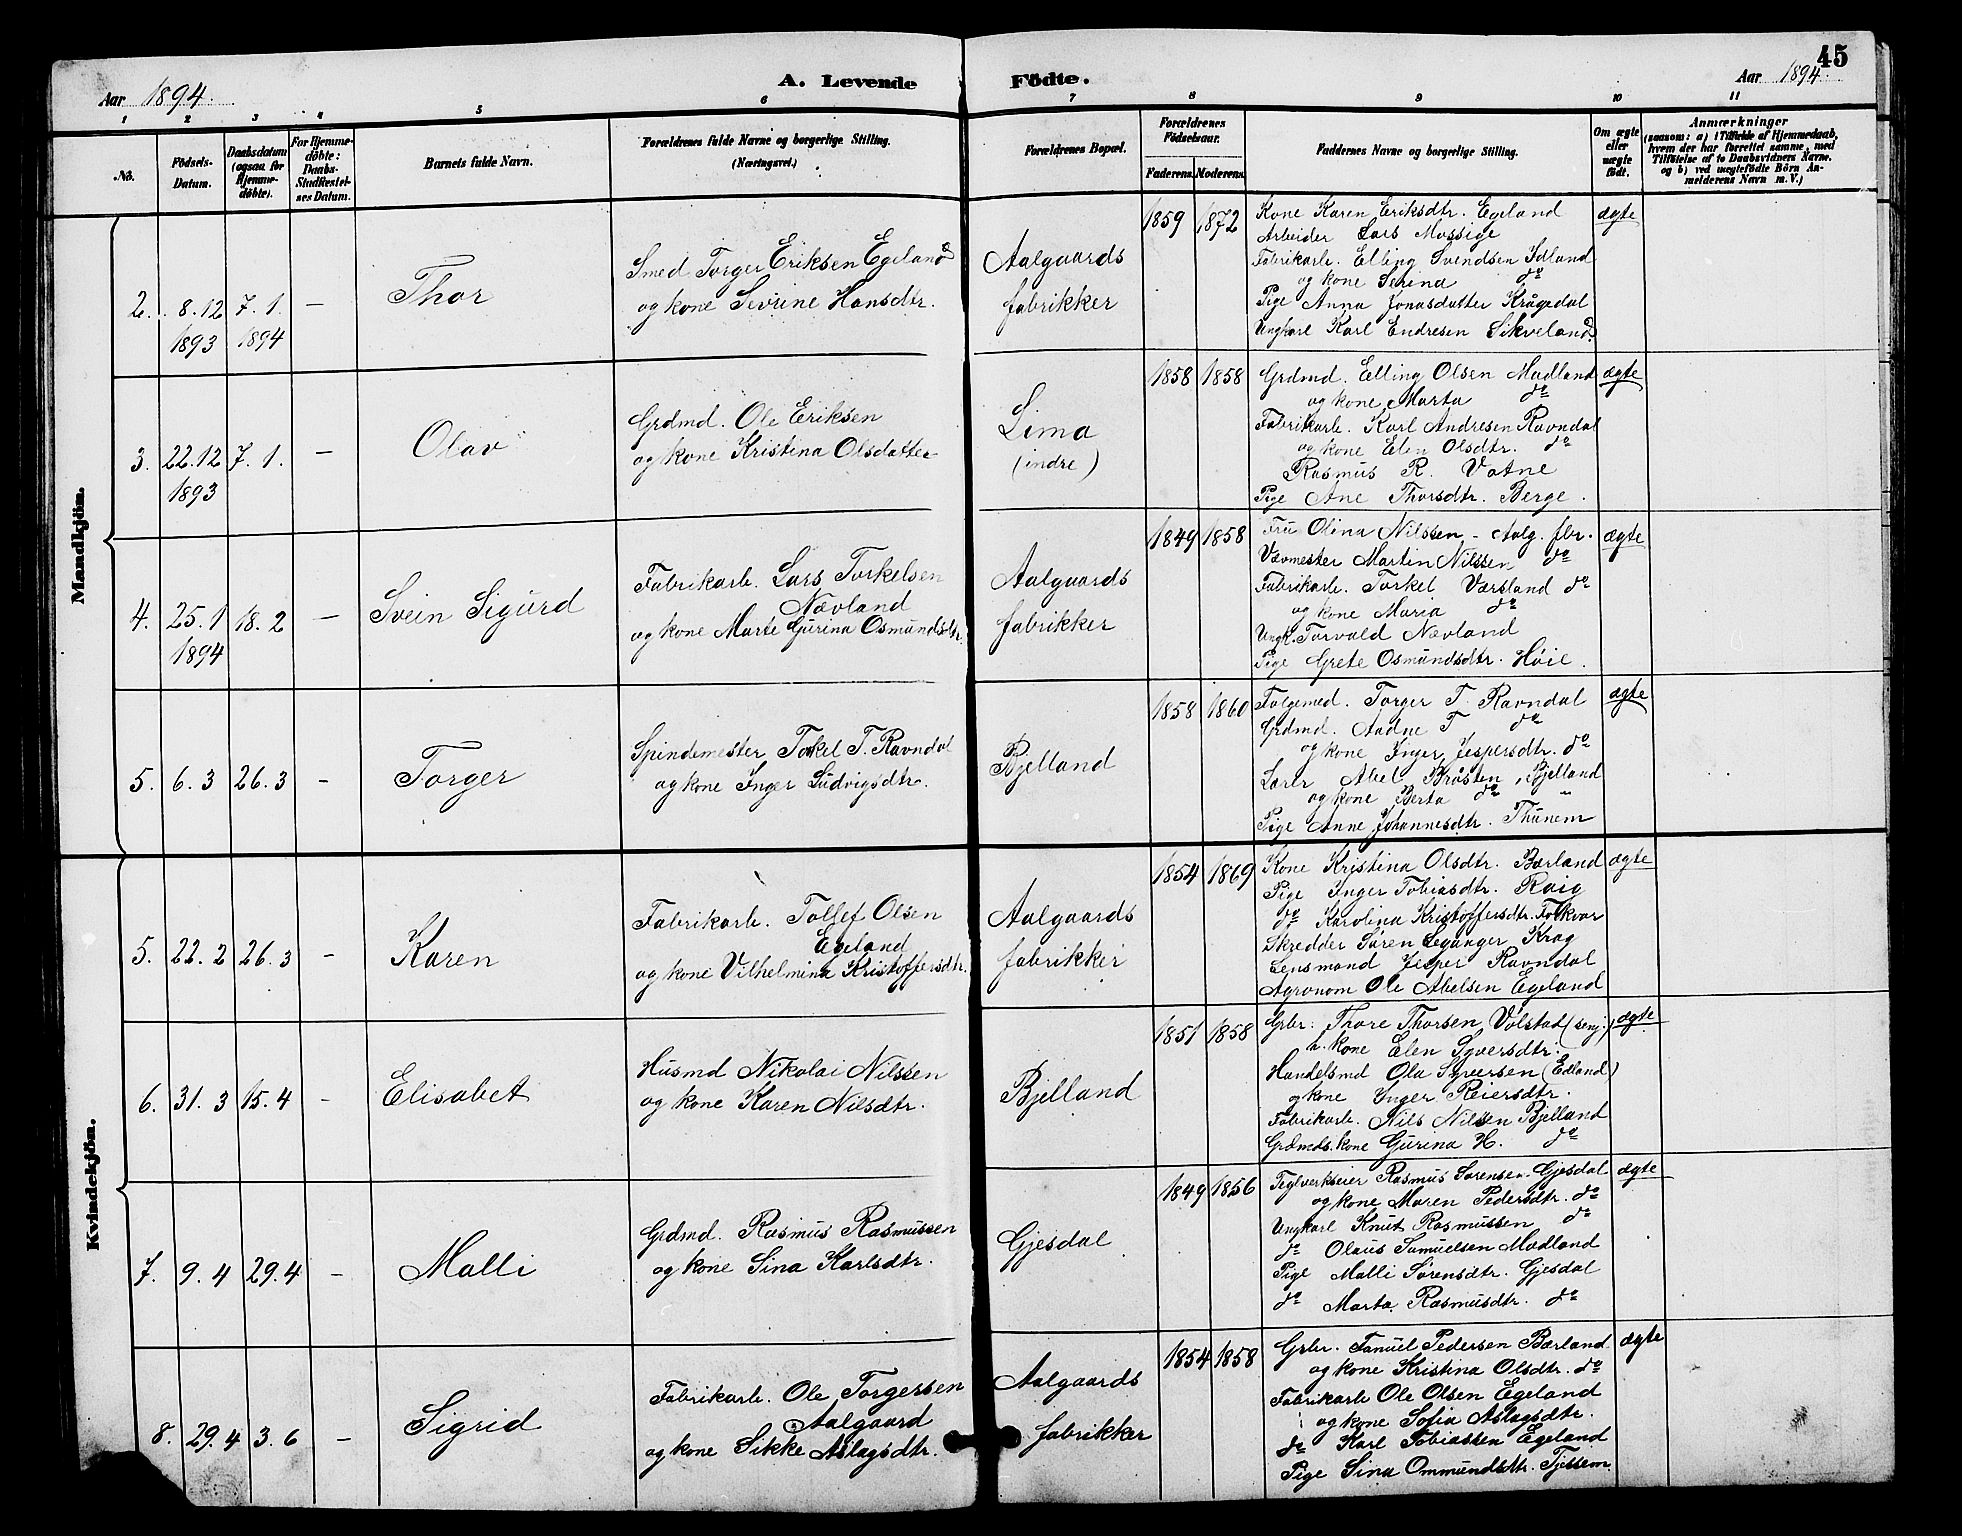 45
A. Levende Födte.
Aar 1894.
Aar 1894.
1 2 3 4 5 6 7 8 9 10 11
No.
Födsels-Datum.
Daabsdatum (ogsaa for Hjemme-döbte).
For Hjemme-döbte: Daabs-Stadfæstel-ses Datum.
Barnets fulde Navn.
Forældrenes fulde Navne og borgerlige Stilling. (Næringsvei.)
Forældrenes Bopæl.
Forældrenes Födselsaar.
Faderens. Moderens.
Faddernes Navne og borgerlige Stilling.
Om ægte eller uægte födt.
Anmærkninger
(saasom: a) i Tilfælde af Hjemmedaab, hvem der har forrettet samme, med Tilföielse af to Daabsvidners Navne. og b) ved uægtefödte Börn An-melderens Navn m. V.)
Mandkjön.
2. 8.12 7.1. —
1893 1894
Thor
Smed Torger Eriksen Egeland
og kone Sevrine Hansdtr.
Aalgaards
fabrikker
1859 1872
Kone Karen Eriksdtr. Egeland
Arbeider Lars Mossige
Fabrikarb. Elling Svendsen Idland
og kone Serina do
Pige Anna Jonasdatter Krågedal
Ungkarl Karl Endresen Sikveland.
ægte
3. 22.12 7.1. —
1893
Olav
Grdmd. Ole Eriksen
og kone Kristina Olsdatter
Lima
(indre)
1858 1858
Grdmd. Elling Olsen Madland
og kone Marta do
Fabrikarb. Karl Andresen Ravndal
og kone Elen Olsdtr. do
Rasmus R. Vatne
Pige Ane Thorsdtr. Berge.
ægte
4. 25.1 18.2 —
1894
Svein Sigurd
Fabrikarb. Lars Torkelsen
Nævland
og kone Marte Gurina Osmundsdtr.
Aalgaards
fabrikker
1849 1858
Fru Olina Nilssen - Aalg. fbr.
Vævmester Martin Nilssen do
Fabrikarb. Torkel Værsland do
og kone Maria do
Ungk. Torvald Nævland
Pige Grete Osmundsdtr. Höie.
ægte
5. 6.3 26.3 -
Torger
Spindemester Tokel T. Ravndal
og kone Inger Ludvigsdtr.
Bjelland
1858 1860
Folgemd. Torger T. Ravndal
Grdmd. Aadne T do
og kone Inger Jespersdtr. do
Lærer Abel Bråsten, Bjelland
og kone Berta do "
Pige Anne Johannesdtr. Thunem
ægte
Kvindekjön.
5. 22.2 26.3 -
Karen
Fabrikarb. Tollef Olsen
Egeland
og kone Vilhelmina Kristoffersdtr.
Aalgaards
fabrikker
1854 1869
Kone Kristina Olsdtr. Bærland
Pige Inger Tobiasdtr. Roig
do Karolina Kristoffersdtr. Folkvor
Skredder Sören Leganger Krag
Lensmand Jesper Ravndal
Agronom Ole Abelsen Egeland
ægte
6. 31.3 15.4 -
Elisabet
Husmd Nikolai Nilssen
og kone Karen Nilsdtr.
Bjelland
1851 1858
Grbr: Thore Thorsen Volstad (senj.)
h. kone Elen Syversdtr.
Handelsmd Ola Syversen (Edland)
og kone Inger Reiersdtr.
Fabrikarb. Nils Nilsen Bjelland
Grdmds. kone Gurina H. do
ægte
7. 9.4 29.4 -
Malli
Grdmd. Rasmus Rasmussen
og kone Sina Karlsdtr.
Gjesdal
1849 1856
Teglverkseier Rasmus Sörensen Gjesdal
og kone Maren Pedersdtr. do
Ungkarl Knut Rasmussen do
do Olaus Samuelsen Madland
Pige Malli Sörensdtr. Gjesdal
do Marta Rasmusdtr. do
ægte
8. 29.4 3.6 -
Sigrid
Fabrikarb. Ole Torgersen
Aalgaard
og kone Sikke Aslagsdtr.
Aalgaards
fabrikker
1854 1858
Grbr. Samuel Pedersen Bærland
og kone Kristina Olsdtr. do
Fabrikarb Ole Olsen Egeland
og kone Sofia Aslagsdtr.
do Karl Tobiassen Egeland
Pige Sina Ommundsdtr. Tjessem
ægte